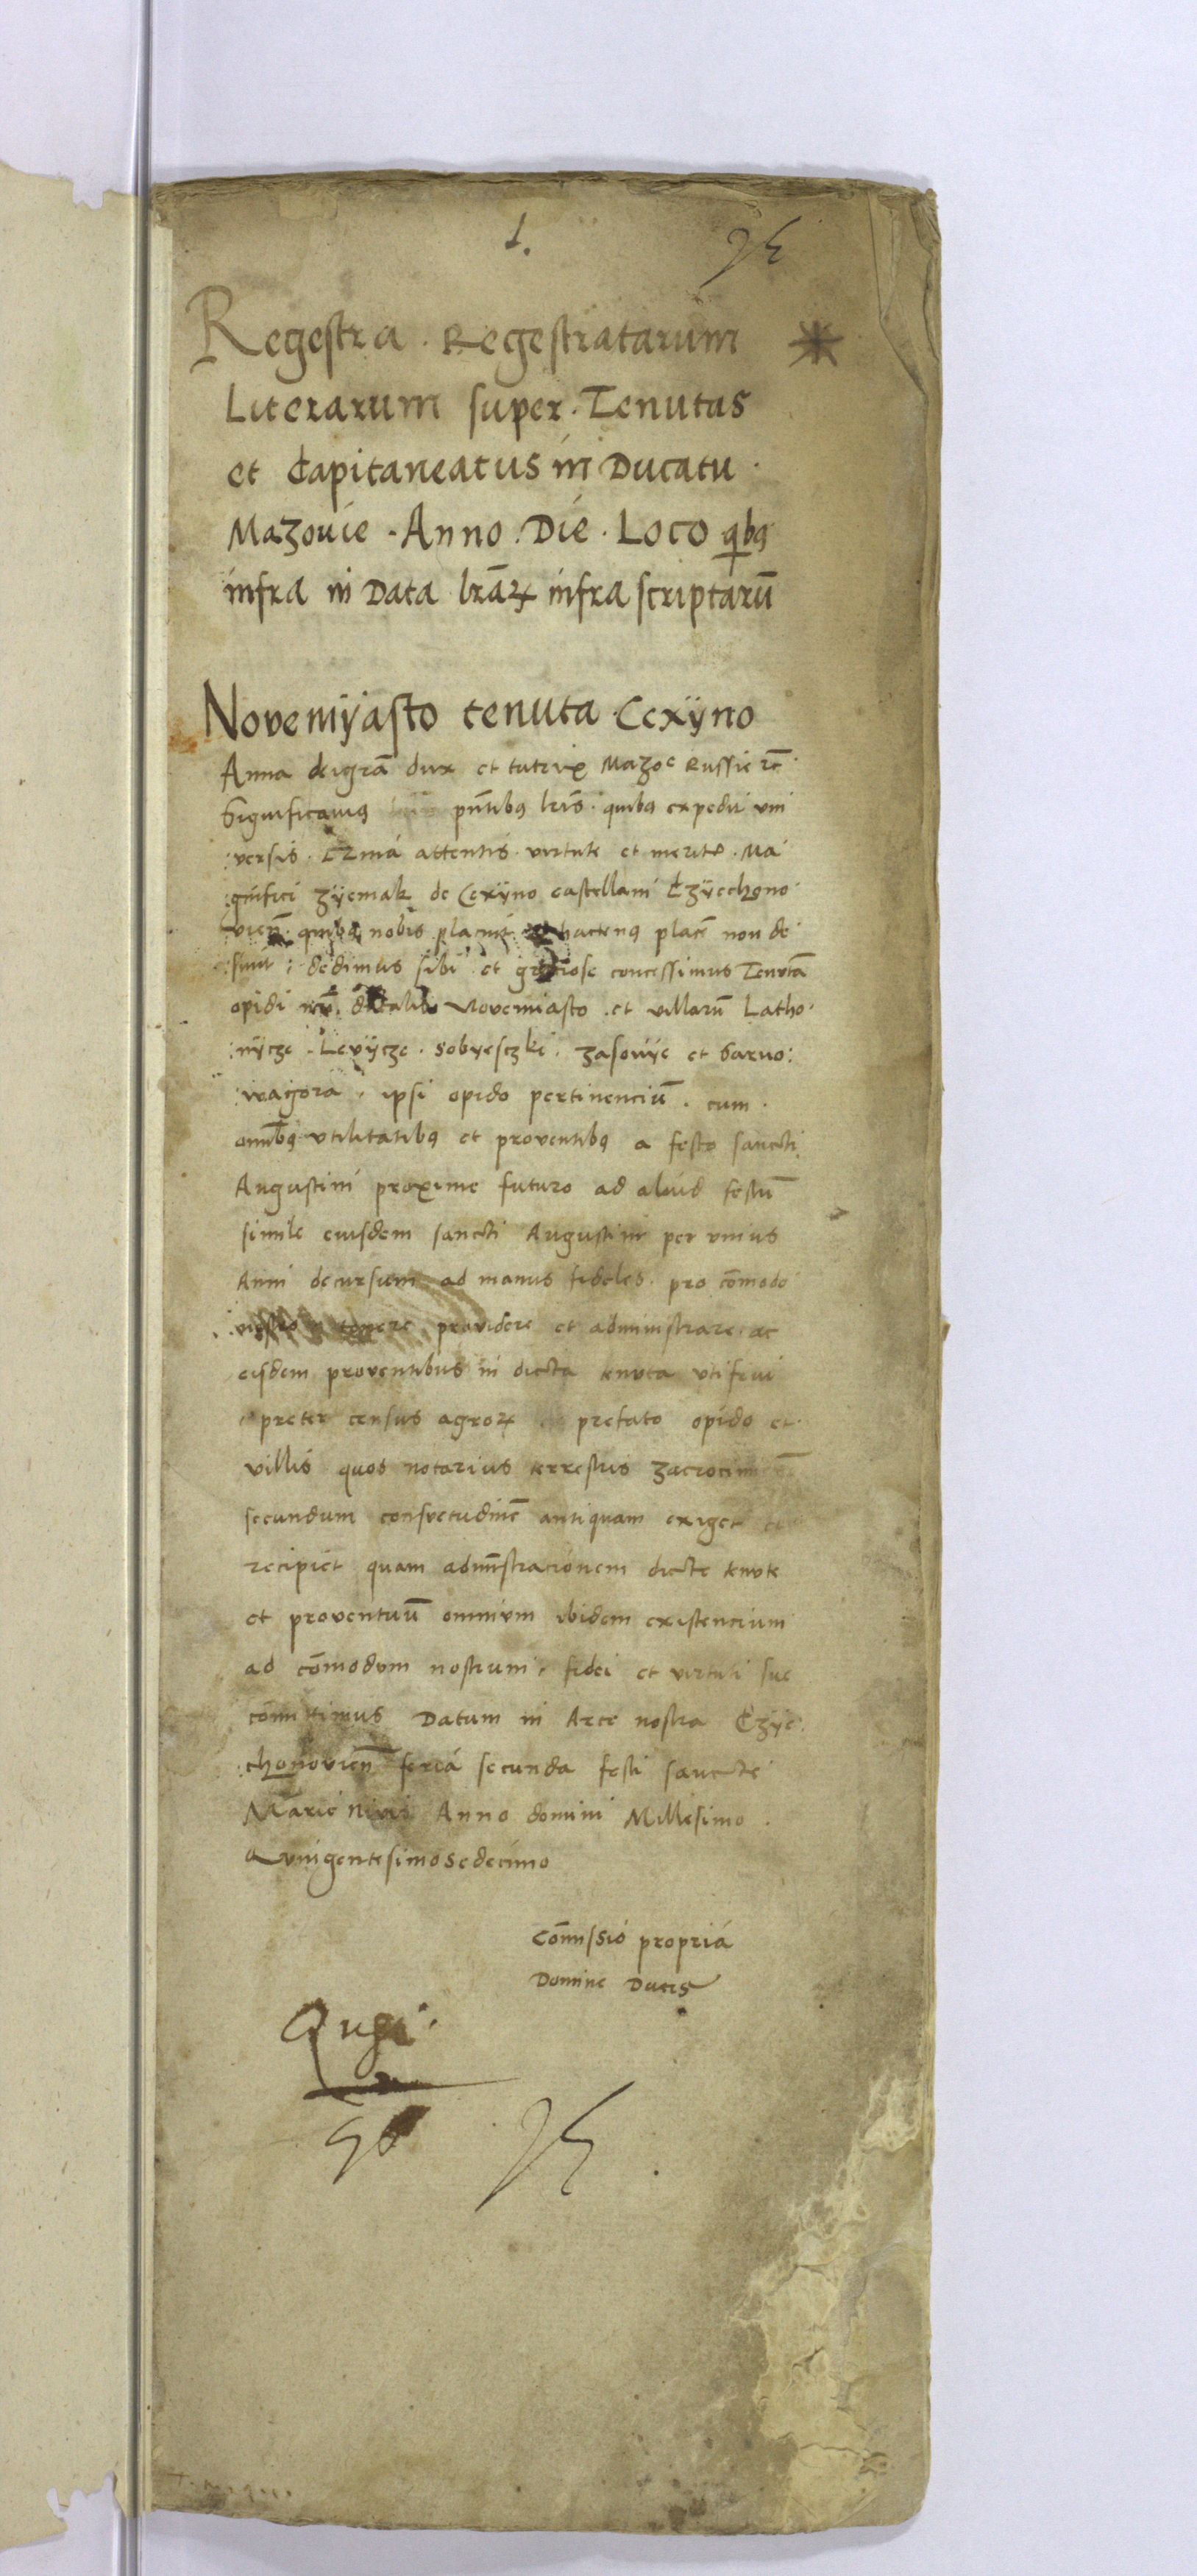 1.
Regestra . Regestratarum
Literarum super . Tenutas
et Capitaneatus in Ducatu .
Mazovie . Anno . Die . Loco qbꝫ
infra in Data lrāꝝ infra scriptarū
Novemÿasto tenuta Cexÿno
Anna deigrā dux et tutrix Mazoe Russie ꝛc̄
Significamꝫ pn̄tibꝫ lris . quibꝫ expedit uni
versis . attentis virtute et meritꝭ . Ma
gnifici Zÿemak de Cexÿno castellani Czÿechono
vien̄ . quibꝫ nobis placuit et hactenꝫ placē non de
sinit : dedimus sibi et graciose concessimus Tenutā
opidi Novemiasto . et villarū Latho
nÿcze . Levÿcze . Sobyesczki . Zasovÿe et Sarno:
:vagora . ipsi opido pertinenciū . cum .
omnibꝫ utilitatibꝫ et proventibꝫ a festo sancti
Augustini proxime futuro ad aliud festū
simile eiusdem sancti Augustini per unius
Anni decursum ad manus fideles . pro cōmodo
nostro tenere providere et administrare ac
eisdem proventibus in dicta tenuta utifrui
preter census agroꝝ prefato opido et
villis quos notarius terrestris
secundum consvetudinē antiquam exiget et
recipiet quam admīstracionem dicte tenute
et proventuū omnium ibidem existencium
ad cōmodum nostrum . fidei et virtuti sue
cōmittimus Datum in Arce nostra Czÿe
chonovien̄ feria secunda festi sancte
Marie Nivis Anno domini Millesimo .
Quingentesimosedecimo
Cōmissio propria
Domine Ducis